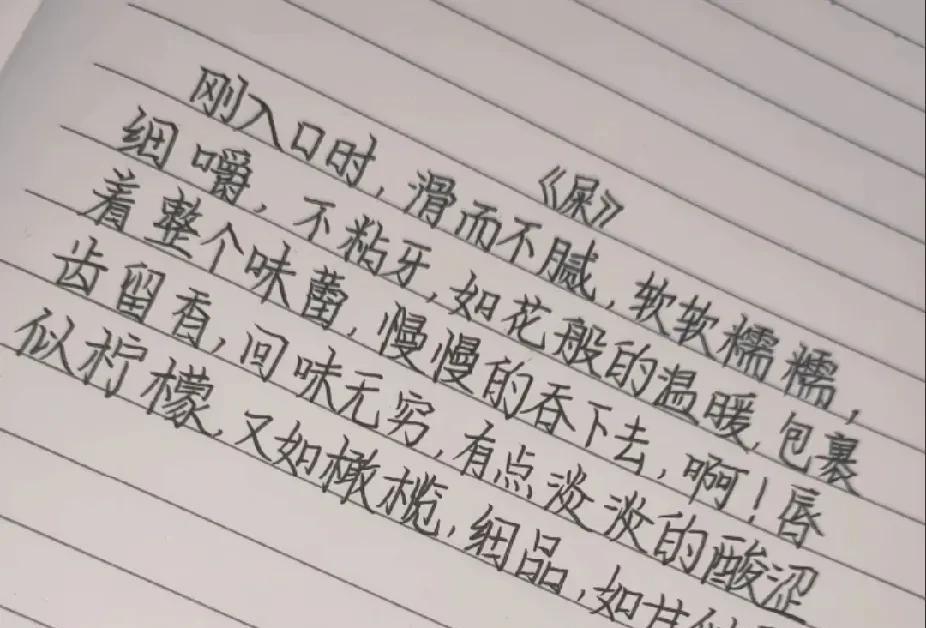 《屎》
刚入口时,滑而不腻,软软糯糯,
细嚼,不粘牙,如花般的温暖,包裹
着整个味蕾,慢慢的吞下去,啊!唇
齿留香,回味无穷,有点淡淡的酸涩
似柠檬,又如橄榄,细品,如甘